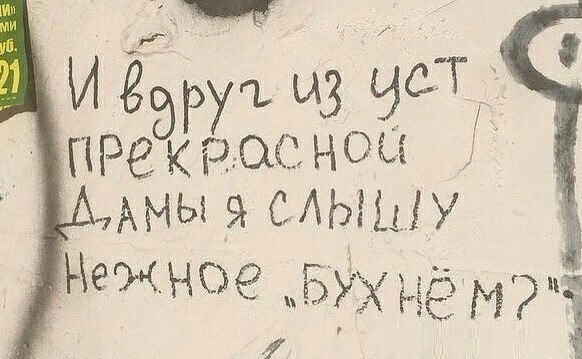 И»
МИ
УБ.
21
И вдруг из уст
прекрасной
Дамы я слышу
Нежное „БУХНЁМ?"